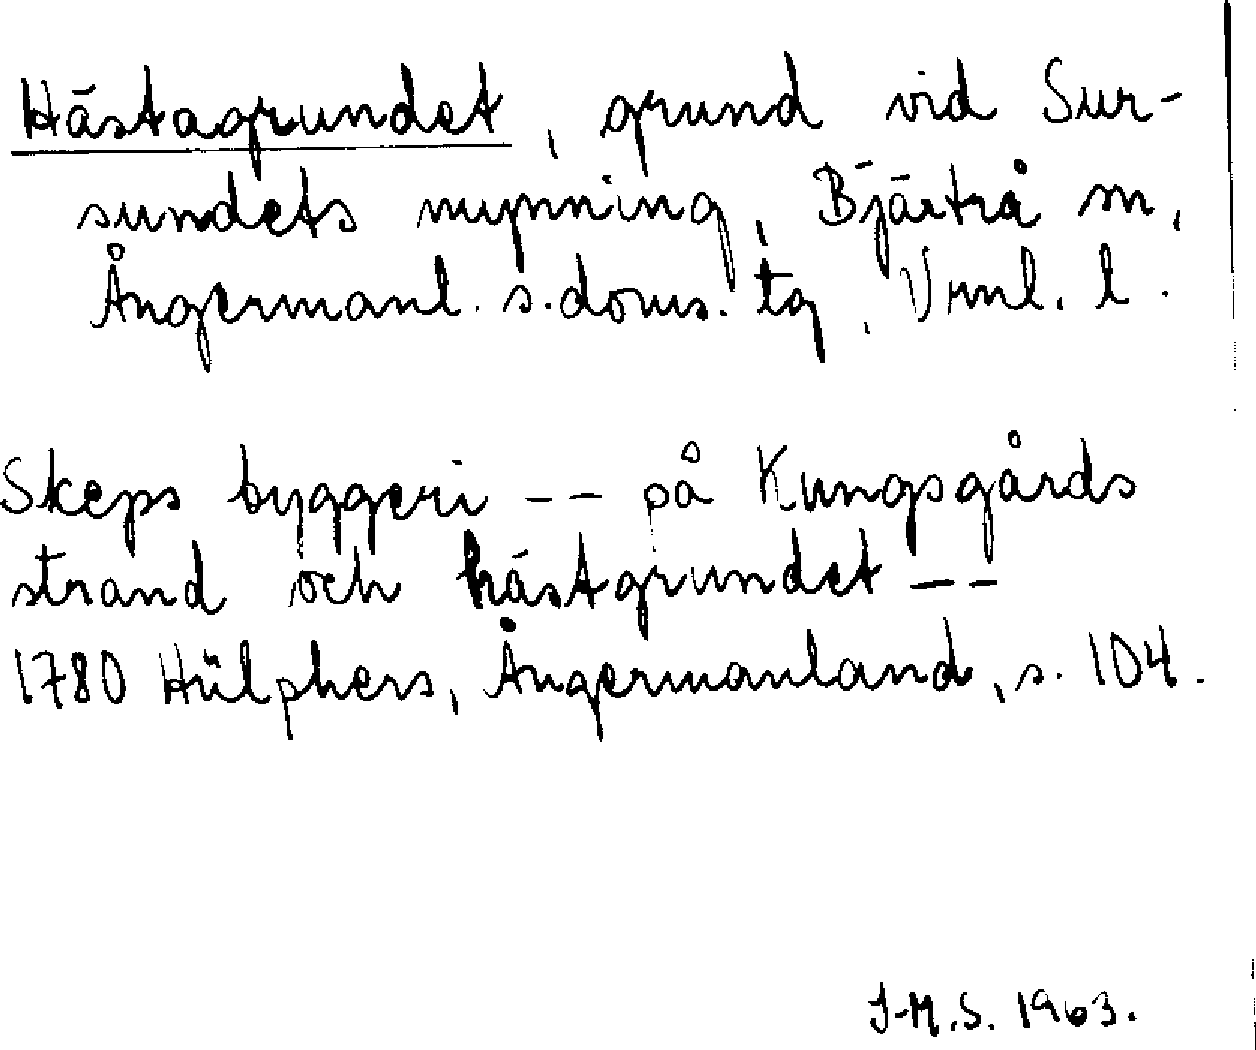 Hästagrundet, grund vid Sur-
sundets mynning, Bjärtrå sn,
Ångermanl. s. doms. tg, Vrnl. l.
Skeps byggeri -- på Kungsgårds
strand och hästgrundet --
1780 Hülphers, Ångermanland, s. 104.
J-M.S. 1963.